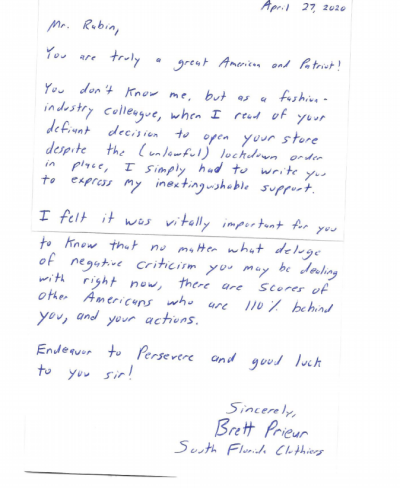 April 27, 2020
Mr. Rubin,
You are truly a great American and Patriot!
You don't know me, but as a fashion-
industry colleague, when I read of your
defiant decision to open your store
despite the (unlawful) lockdown order
in place, I simply had to write you
to express my inextinguishable support.
I felt it was vitally important for you
to know that no matter what deluge
of negative criticism you may be dealing
with right now, there are scores of
other Americans who are 110% behind
you, and your actions.
Endeavor to Persevere and good luck
to you sir!
Sincerely,
Brett Prieur
South Florida Clothiers